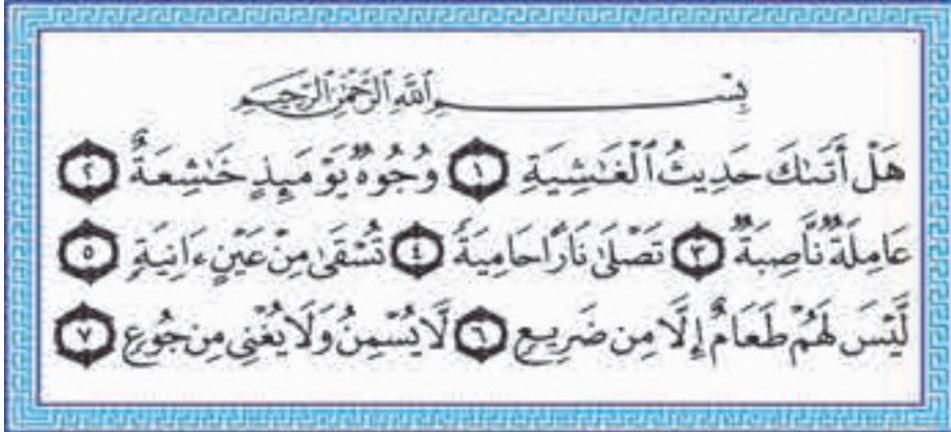 بِسْمِ ٱللَّهِ ٱلرَّحْمَٰنِ ٱلرَّحِيمِ
هَلْ أَتَىٰكَ حَدِيثُ ٱلْغَٰشِيَةِ ١ وُجُوهٌ يَوْمَئِذٍ خَٰشِعَةٌ ٢
عَامِلَةٌ نَّاصِبَةٌ ٣ تَصْلَىٰ نَارًا حَامِيَةً ٤ تُسْقَىٰ مِنْ عَيْنٍ ءَانِيَةٍ ٥
لَّيْسَ لَهُمْ طَعَامٌ إِلَّا مِن ضَرِيعٍ ٦ لَّا يُسْمِنُ وَلَا يُغْنِى مِن جُوعٍ ٧